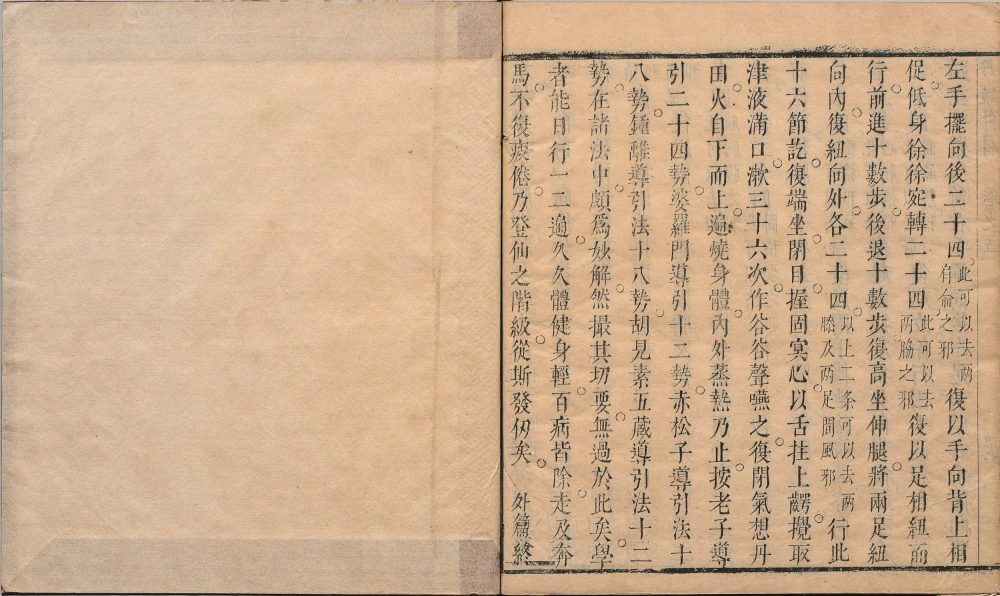 左手擺向後二十四此可以去兩肩俞之邪復以手向背上相
促低身徐徐宛轉二十四此可以去兩脇之邪復以足相紐而
行前進十數步後退十數步復高坐伸腿將兩足紐
向內復紐向外各二十四以上二条可以去两膝及两足間風邪行此
十六節訖復端坐閉目握固冥心以舌拄上齶攪取
津液滿口漱三十六次作谷谷聲嚥之復閉氣想丹
田火自下而上遍燒身體內外蒸熱乃止按老子導
引二十四勢婆羅門導引十二勢赤松子導引法十
八勢鍾離導引法十八勢胡見素五藏導引法十二
勢在諸法中頗爲妙解然撮其切要無過於此矣學
者能日行一二遍久久體健身輕百病皆除走及奔
馬不復疲倦乃登仙之階級從斯發仞矣 外篇終